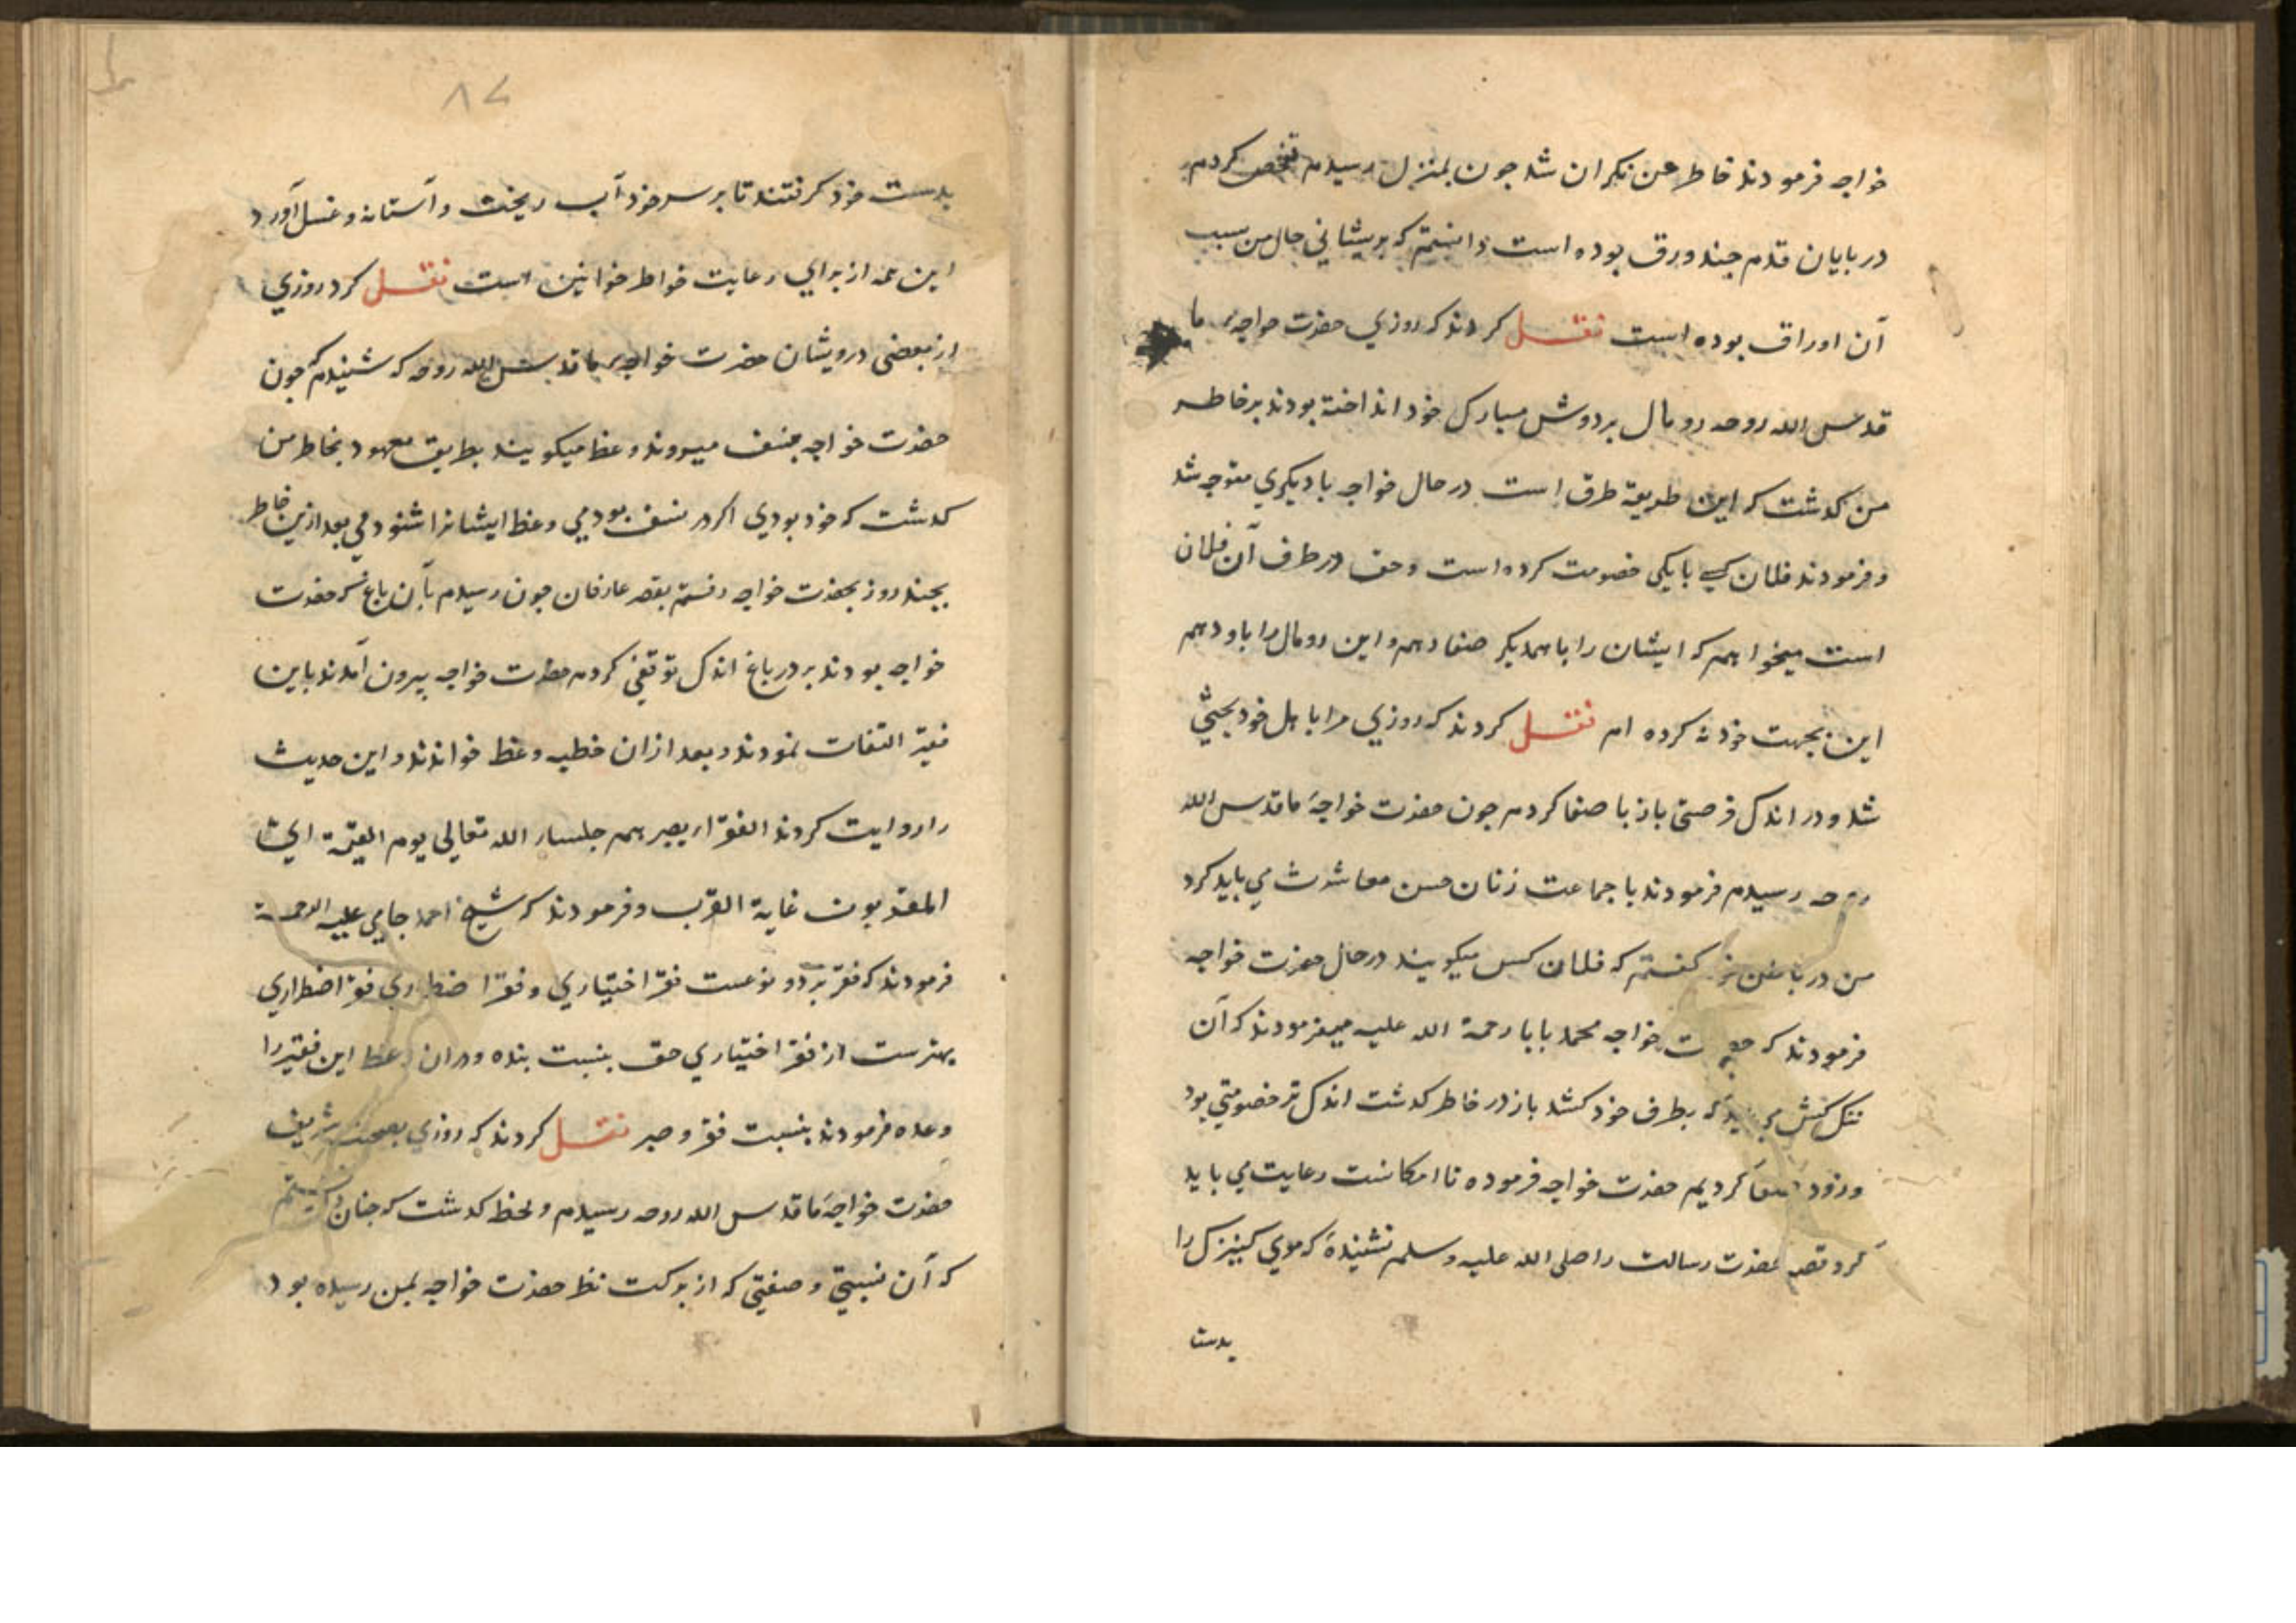 خواجه فرمودند خاطر من نکران شد جون بمنزل رسیدم تفحص کردم
در بایان قدم جند ورق بوده است دانستم که بریشانی حال من سبب
آن اوراق بوده است نقل کردند که روزی حضرت خواجه ما
قدس الله روحه رومال بر دوش مبارک خود انداخته بودند بر خاطر
من کدشت که این طریقه طرق است در حال خواجه با دیکری متوجه شد
و فرمودند فلان کسی با یکی خصومت کرده است و حق در طرف آن فلان
است میخواهم که ایشان را با همدیکر صفا دهم و این رومال را باو دهم
این بجهت خود نه کرده ام نقل کردند که روزی مرا با اهل خود بحثی
شد و در اندک فرصتی باز با صفا کردم جون حضرت خواجهٔ ما قدس الله
روحه رسیدم فرمودند با جماعت زنان حسن معاشرت می باید کرد
من در باطن خود کفتم که فلان کس میکویند در حال حضرت خواجه
فرمودند که حضرت خواجه محمد بابا رحمة الله علیه میفرمودند که آن
بطرف خود کشد باز در خاطر کدشت اندک تر خصومتی بود
و زود صفا کردیم حضرت خواجه فرموده تا امکانست رعایت می باید
کرد قصه حضرت رسالت را صلی الله علیه وسلم نشنیدهٔ که موی کنیزک را
بدست
۸۷
بدست خود کرفتند تا بر سر خود آب ریخت و آستانه و غسل آورد
این همه از برای رعایت خواطر خواتین است نقل کرد روزی
از بعضی درویشان حضرت خواجه ما قدس الله روحه که شنیدم که جون
حضرت خواجه بنسف میروند وعظ میکویند بطریق معهود بخاطر من
کدشت که خود بودی اکر در نسف بودمی وعظ ایشانرا شنودمی بعد ازین خاطر
بجند روز بحضرت خواجه رفتم بقصر عارفان جون رسیدم بآن باغ که حضرت
خواجه بودند بر در باغ اندک توقفی کردم حضرت خواجه بیرون آمدند باین
فقیر التفات نمودند و بعد از ان خطبه وعظ خواندند و این حدیث
را روایت کردند الفقراء یصبر هم جلساء الله تعالی یوم القیمة ای
المقربون غایة القرب و فرمودند که شیخ احمد جامی علیه الرحمة
فرمودند که فقر بر دو نوعست فقر اختیاری و فقر اضطراری فقر اضطراری
بهترست از فقر اختیاری حق بنسبت بنده و در ان وعظ این فقیر را
وعده فرمودند بنسبت فقر و صبر نقل کردند که روزی بصحبت شریف
حضرت خواجهٔ ما قدس الله روحه رسیدم و لحظ کدشت که جنان دانستم
که آن نسبتی و صفتی که از برکت نظر حضرت خواجه بمن رسیده بود